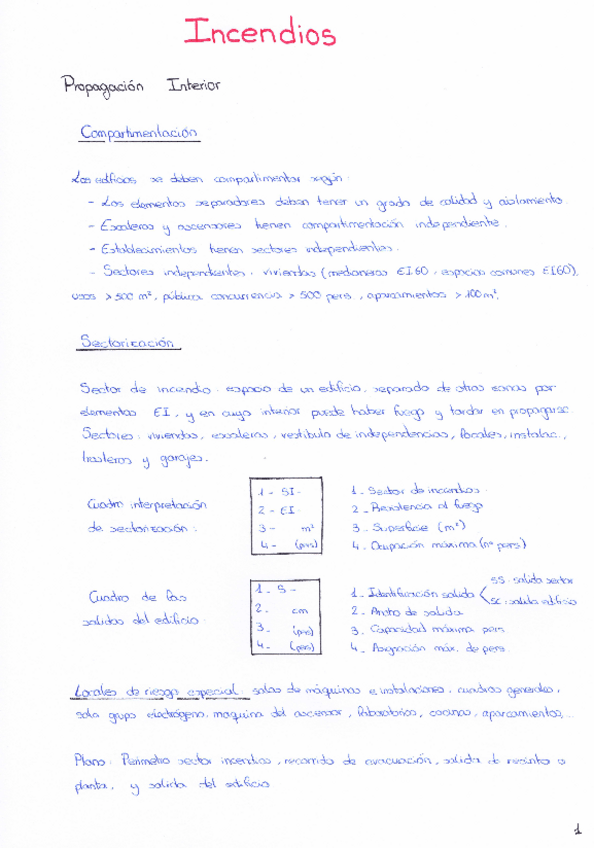 Incendios
Propagación Interior
Compartimentación
Los edificios se deben compartimentar según:
- Los elementos separadores deben tener un grado de calidad y aislamiento.
- Escaleras y ascensores tienen compartimentación independiente.
- Establecimientos tienen sectores independientes.
- Sectores independientes: viviendas (medianeras EI.60, espacios comunes EI60),
usos > 500 m², pública concurrencia > 500 pers, aparcamientos > 100 m².
Sectorización
Sector de incendio: espacio de un edificio separado de otras zonas por
elementos EI, y en cuyo interior puede haber fuego y tardar en propagarse.
Sectores: viviendas, escaleras, vestíbulo de independencias, locales, instalac.,
trasteros y garajes.
Cuadro interpretación
de sectorización:
1 - SI-
2 - EI-
3 - m²
4 - (prs)
1 - Sector de incendios
2 - Resistencia al fuego
3 - Superficie (m²)
4 - Ocupación máxima (nº pers)
Cuadro de las
salidas del edificio
1 - S -
2. cm
3. (prs)
4. (prs)
1 - Identificación salida
SS: salida sector
SE: salida edificio
2 - Ancho de salida
3 - Capacidad máxima pers
4 - Asignación máx. de pers
Locales de riesgo especial: salas de máquinas e instalaciones, cuadros generales,
sala grupo electrógeno, maquina del ascensor, laboratorios, cocinas, aparcamientos...
Plano: Perímetro sector incendios, recorrido de evacuación, salida de recinto o
planta, y salida del edificio
1